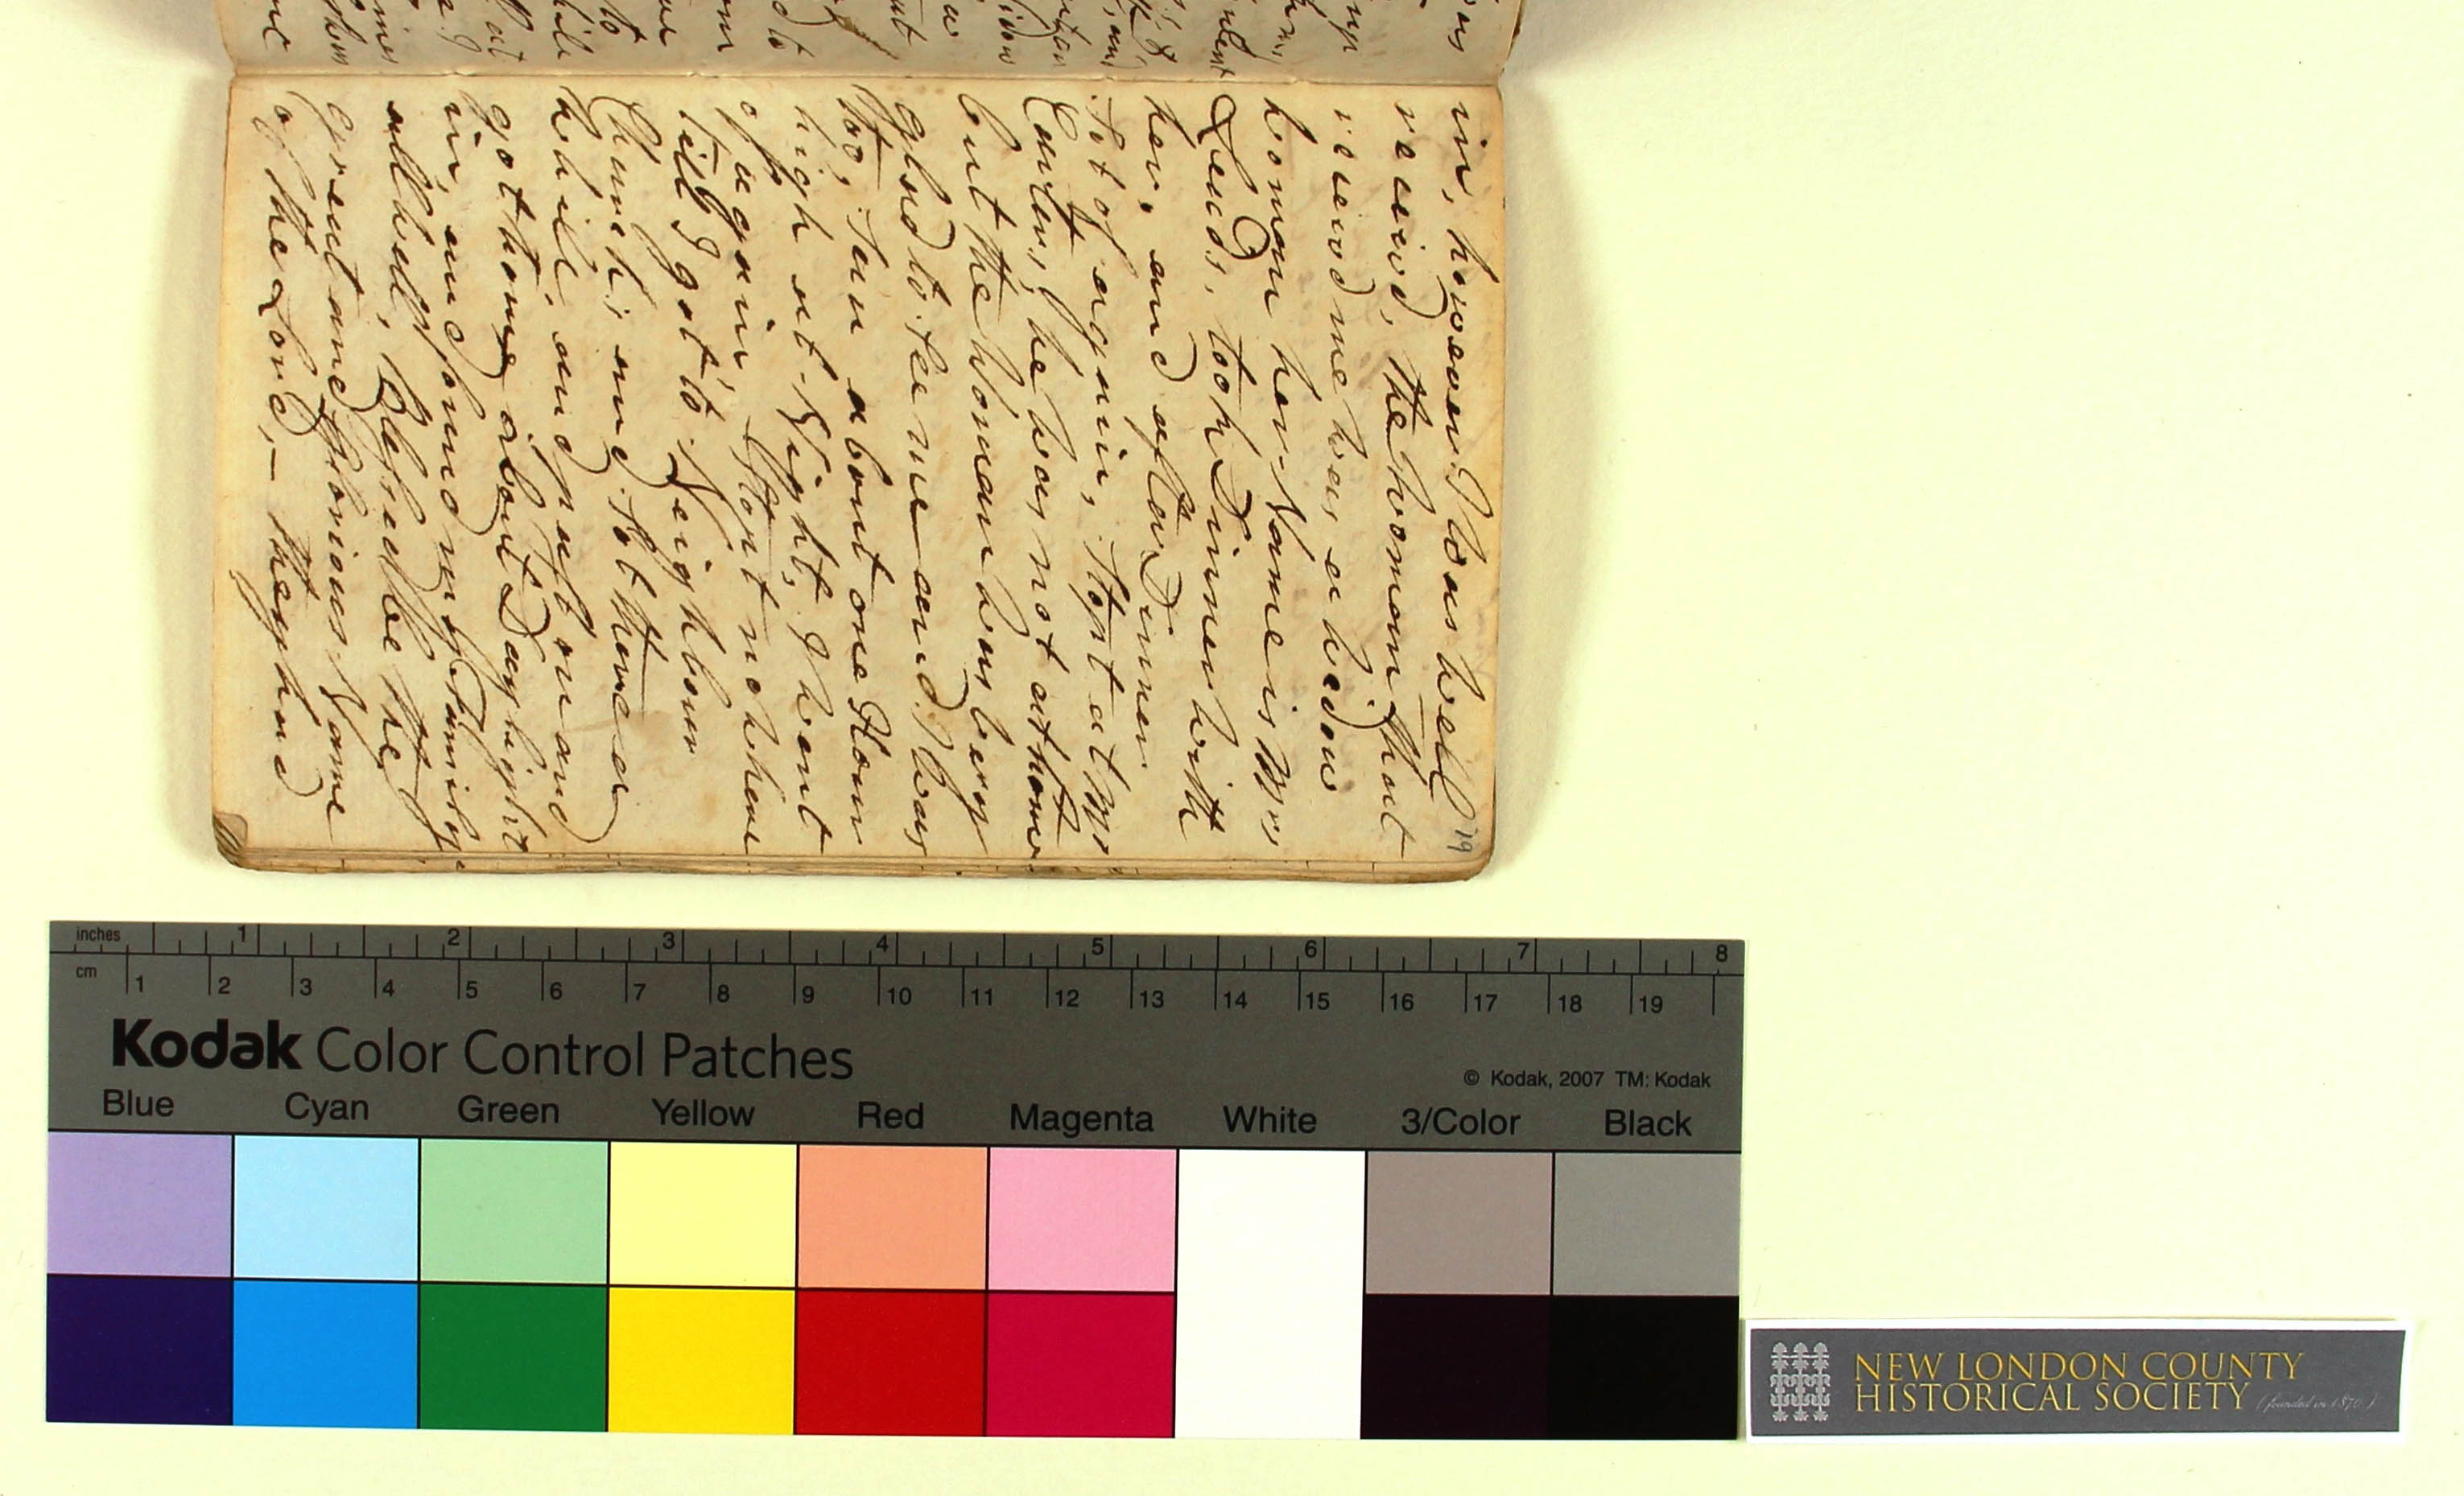 19
in, however I was well
receivd, the woman that
receivd me was a widow
woman her Name is Mrs
Leeds, took Dinner with
her, and after Dinner
Sot of again, Stopt at Mr
Carter, he was not at home
but the woman was very
glad to See me and I was
too, Sun about one Hour
high at Night, I went
of again, Stopt no where
till I got to Neighbour
Church, and Sot there a
while, and past on and
got home about Daylight
in, and found my Family
all well, Blessed be the
great and glorious Name
of the Lord,— they had
inches 1 2 3 4 5 6 7 8
cm 1 2 3 4 5 6 7 8 9 10 11 12 13 14 15 16 17 18 19
Kodak Color Control Patches
© Kodak, 2007 TM: Kodak
Blue Cyan Green Yellow Red Magenta White 3/Color Black
NEW LONDON COUNTY
HISTORICAL SOCIETY (founded in 1870)